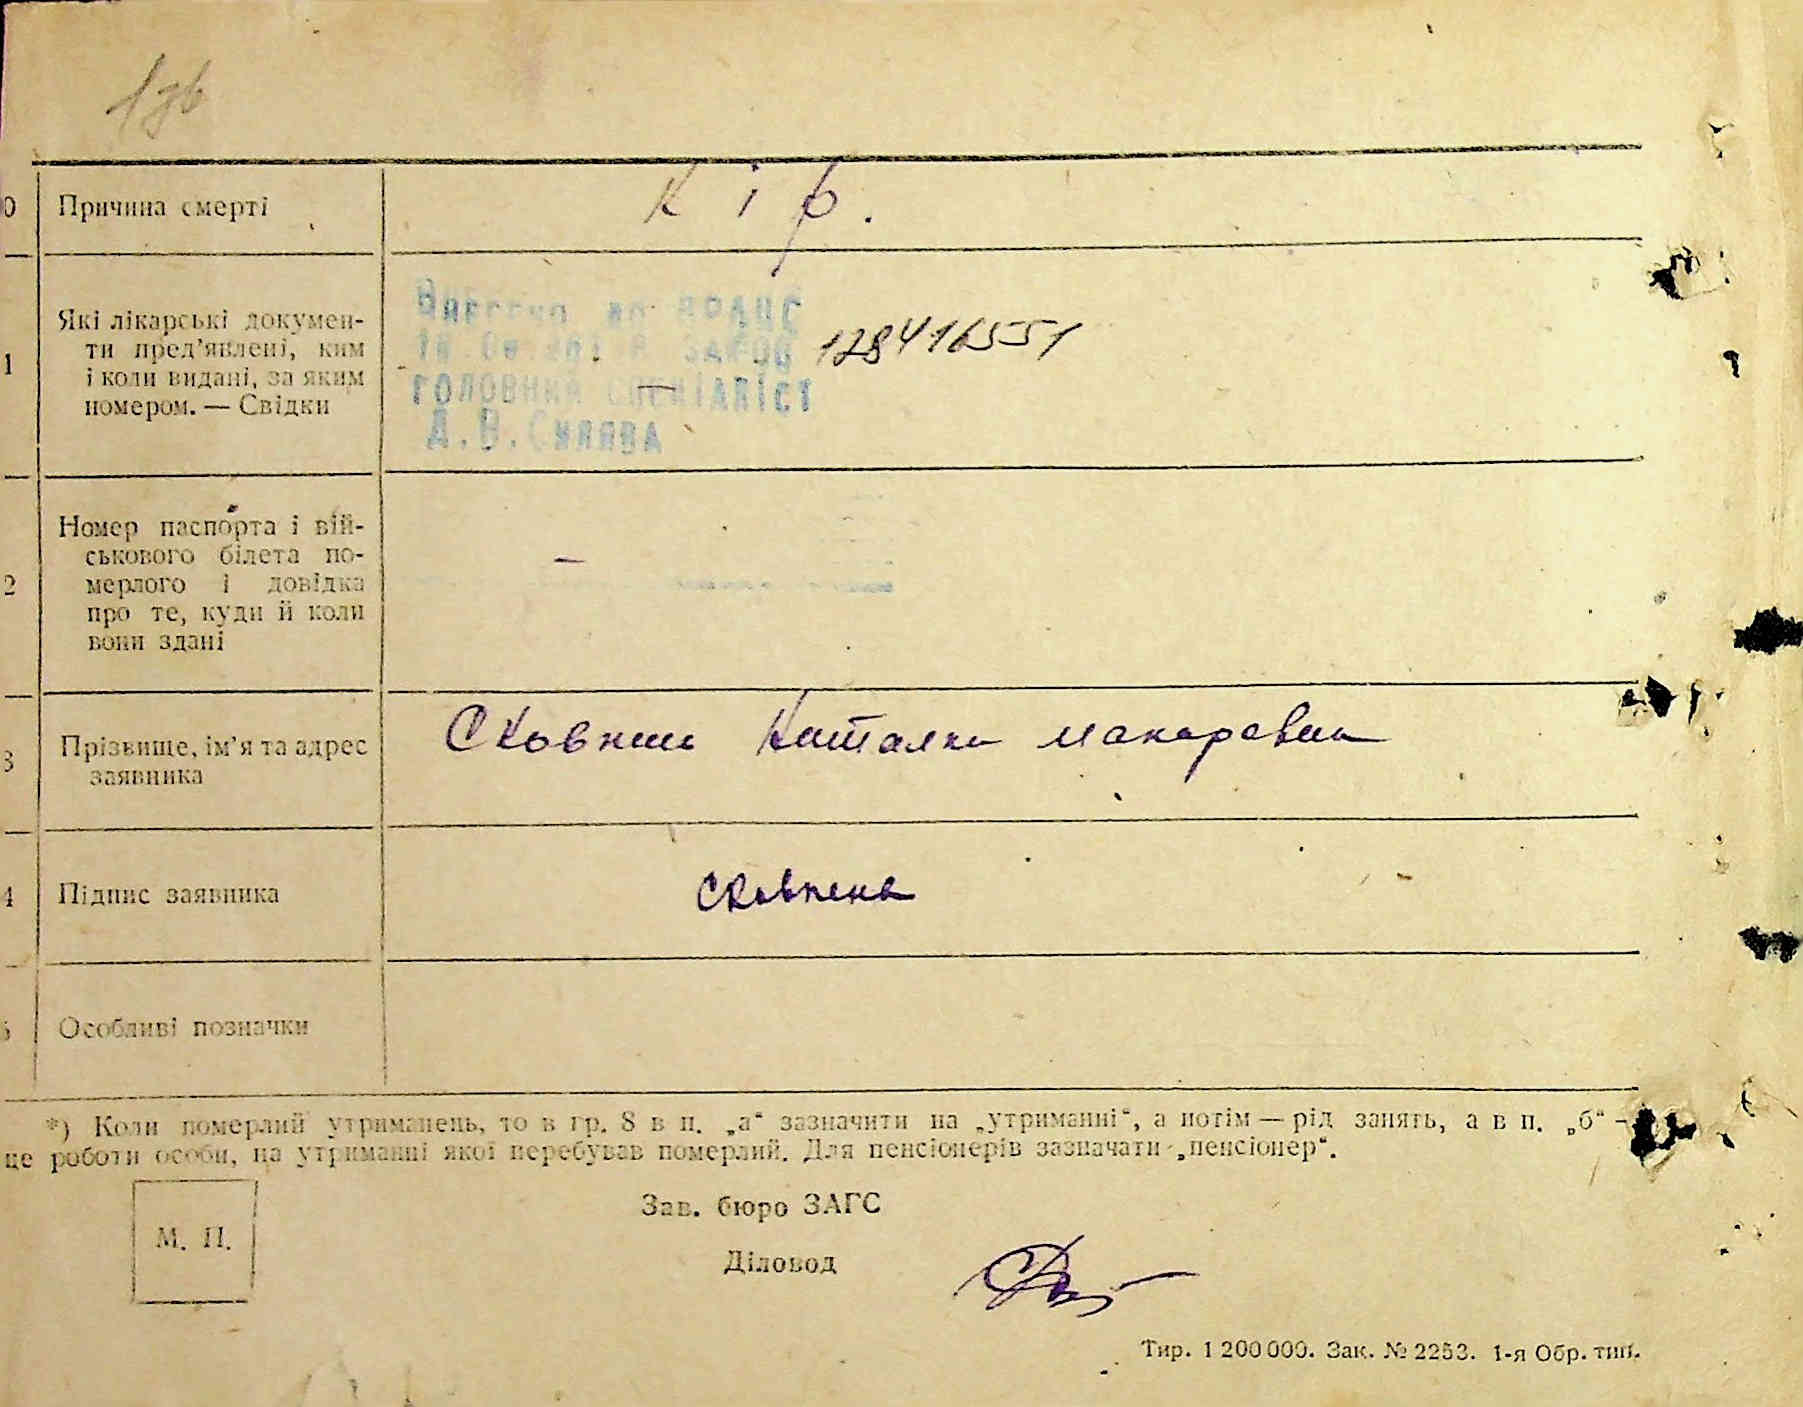 0 Причина смерті
К і р.
1 Які лікарські докумен-
ти пред'явлені, ким
і коли видані, за яким
номером. — Свідки
Внесено до ДРАЦС
128416551
головний спеціаліст
—
2 Номер паспорта і вій-
ськового білета по-
мерлого і довідка
про те, куди й коли
вони здані
—
3 Прізвище, ім'я та адрес
заявника
Наталка Макаровна
4 Підпис заявника
5 Особливі позначки
*) Коли померлий утриманець, то в гр. 8 в п. „а“ зазначити на „утриманні“, а потім — рід занять, а в п. „б“ —
це роботи особи, на утриманні якої перебував померлий. Для пенсіонерів зазначати „пенсіонер“.
М. П.
Зав. бюро ЗАГС
Діловод
Тир. 1 200 000. Зак. № 2253. 1-я Обр. тип.